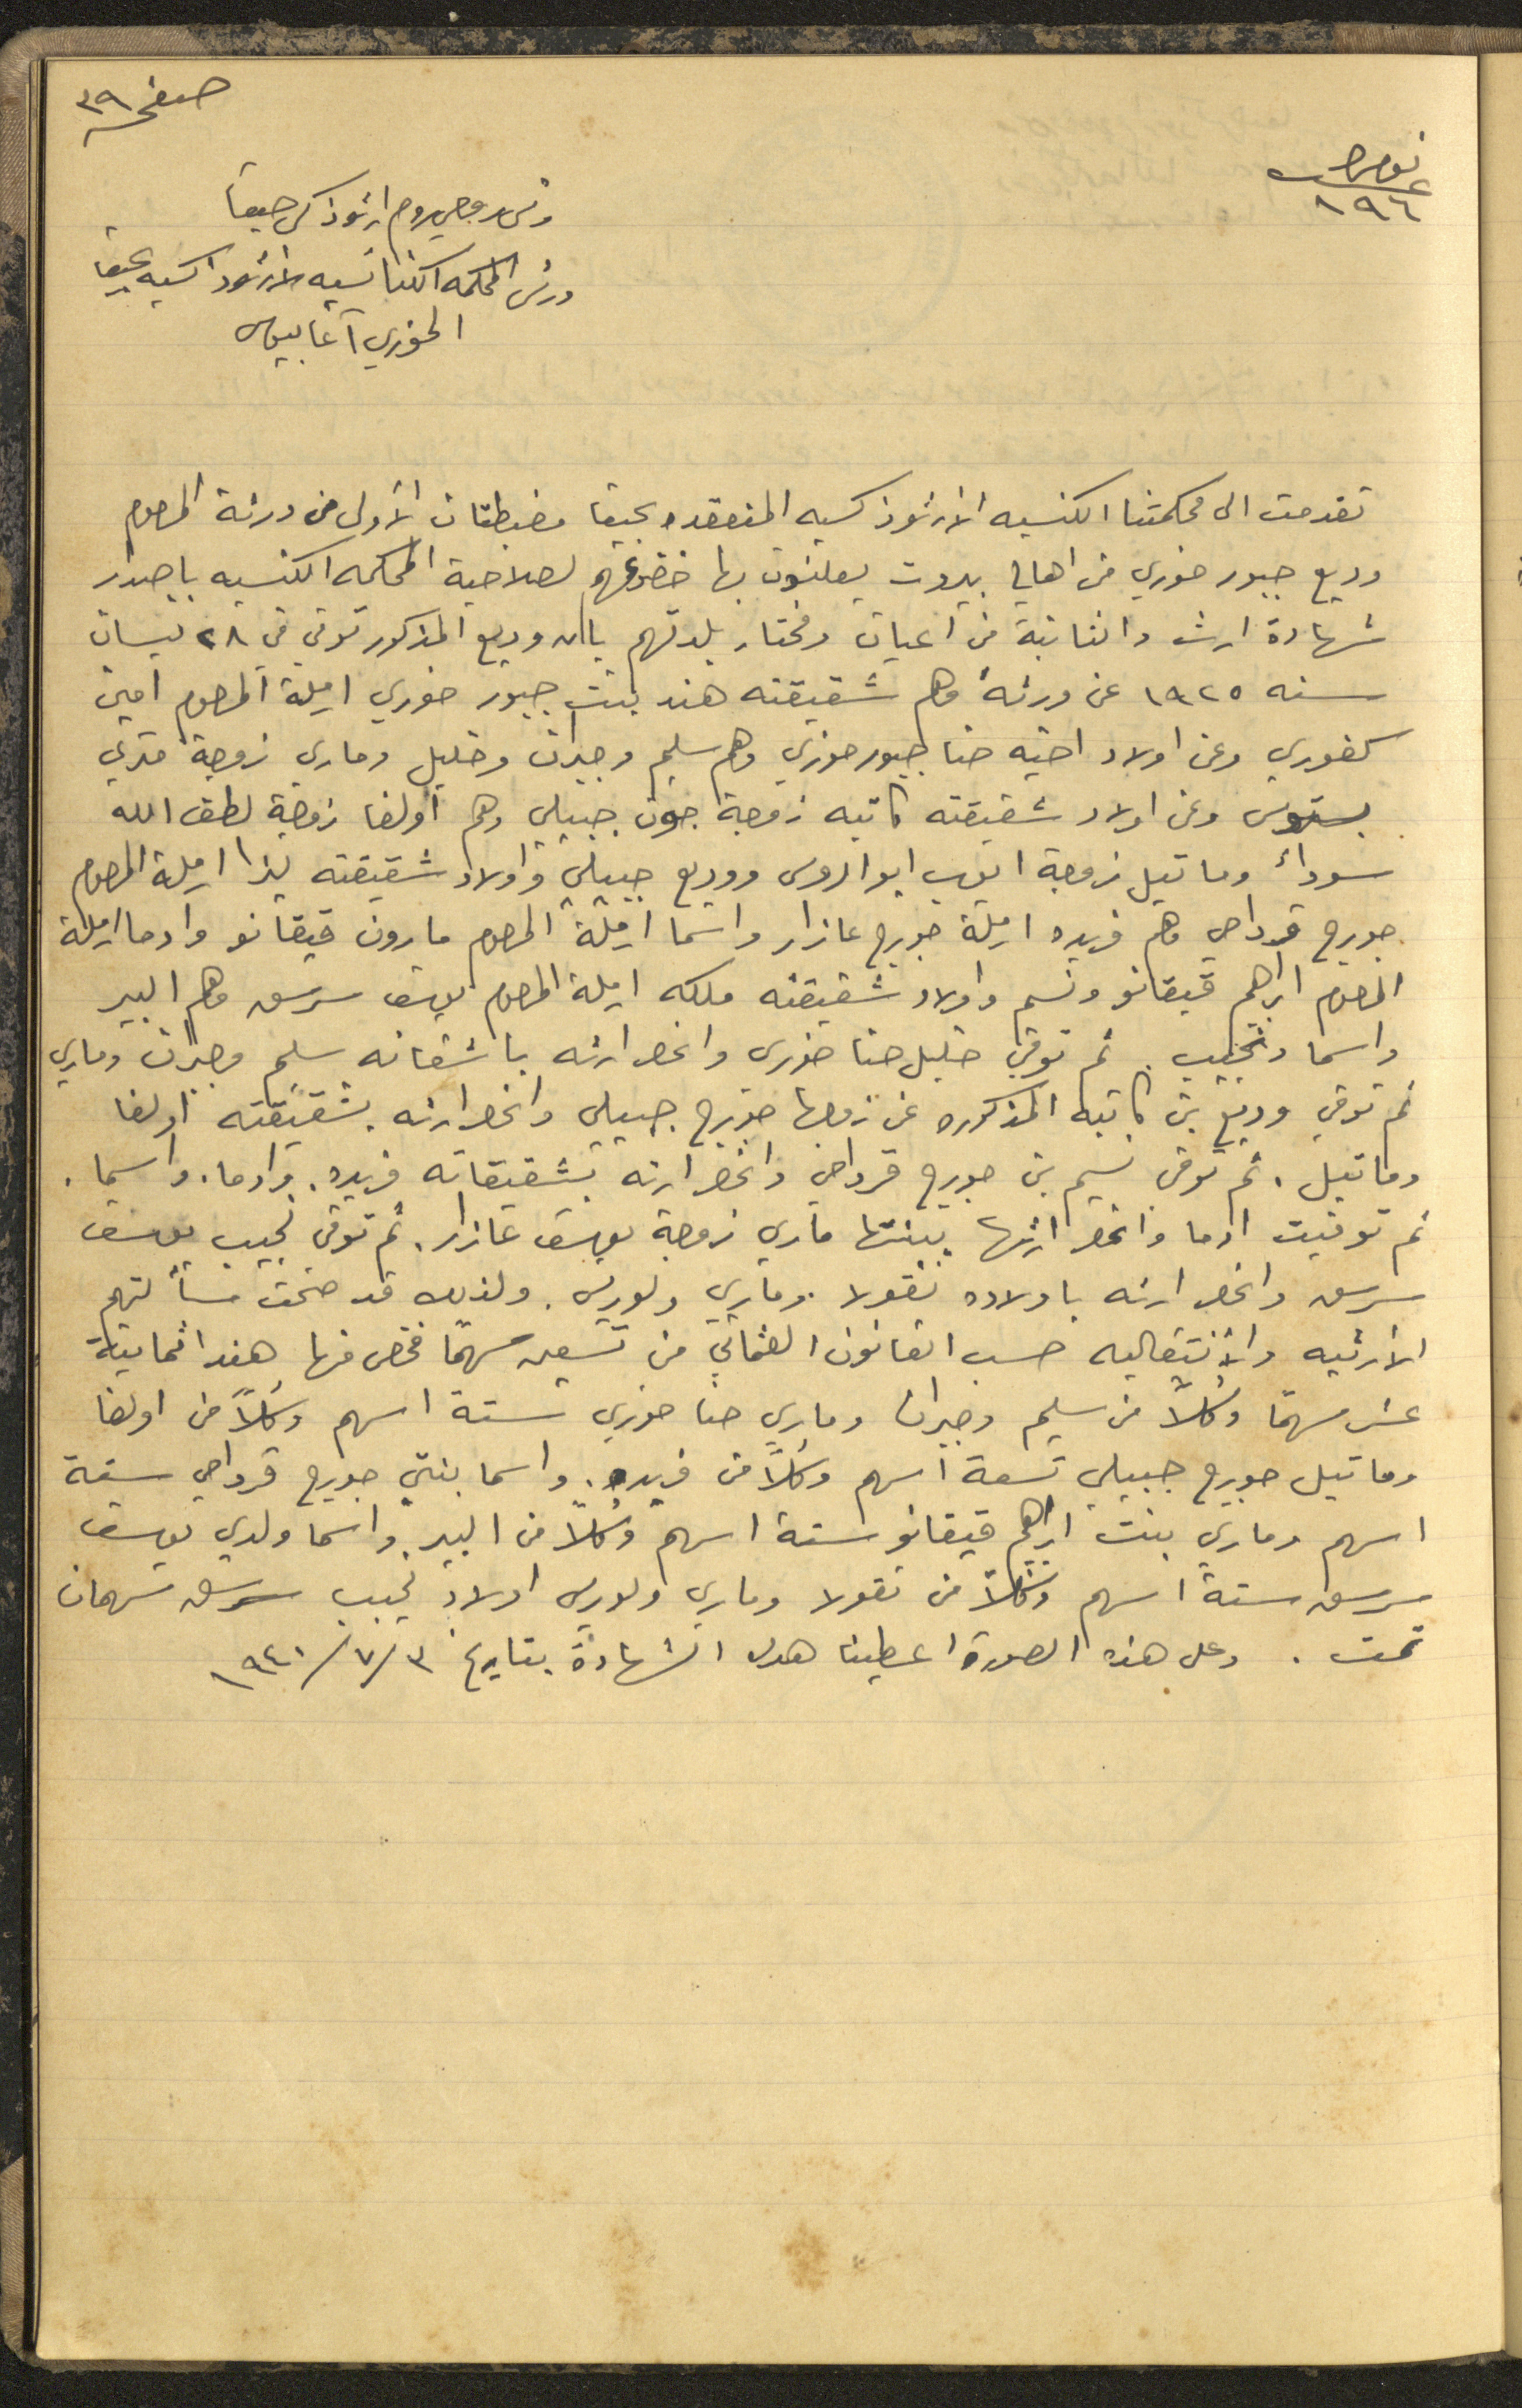 صفحه ٣٩
نومره
١٩٦
رئيس روحي روم ارثوذكس حيفا
ورئيس المحكمه الكنائسيه الارثوذكسيه بحيفا
الخوري آغابيوس
تقدمت الى محكمتنا الكنسيه الارثوذكسيه المنعقده بحيفا مضبطتان الأولى من ورثة المرحوم
وديع جبور خوري من اهالي بيروت يعلنون بها خضوعهم لصلاحية المحكمه الكنسيه باصدار
شهادة ارث والثانية من اعيان ومختار بلدتهم بان وديع المذكور توفي في ٢٨ نيسان
سنه ١٩٢٥ عن ورثة وهم شقيقته هند بنت جبور خوري ارملة المرحوم امين
كفوري وعن اولاد اخيه حنا جبور خوري وهم سليم وجبران وخليل وماري زوجة متري
بسترس وعن اولاد شقيقته كاتبه زوجة جبيلي وهم أولغا زوجة لطف الله
سودأ وماتيل زوجة ايوب ابو الروس ووديع جبيلي واولاد شقيقته ليزا ارملة المرحوم
جورج قرداحي وهم فريده ارملة جورج عازار واسما ارملة المرحوم مارون قيقانو وادما ارملة
المرحوم ابراهيم قيقانو ونسيم واولاد شقيقته ملكه ارملة المرحوم يوسف سرسق وهم البير
واسما ونجيب. ثم توفي خليل حنا خوري وانحصر ارثه باشقائه سليم وجبران وماري
ثم توفي وديع بن كاتبه المذكوره عن زوجها جورج جبيلي وانحصر ارثه بشقيقته أولغا
وماتيل. ثم توفي نسيم بن جورج قرداحي وانحصر ارثه بشقيقاته فريده. وادما. واسما.
ثم توفيت ادما وانحصر ارثها ببنتها ماري زوجة يوسف عازار. ثم توفي نجيب يوسف
سرسق وانحصر ارثه باولاده نقولا وماري ولوريس. ولذلك قد صحت مسألتهم
الارثيه والأنتقاليه حسب القانون العثماني من تسعين سهمًا فخص منها هند ثمانية
عشر سهمًا وكلاً من سليم وجبران وماري حنا خوري ستة اسهم وكلاً من اولغا
وماتيل جورج جبيلي تسعة اسهم وكلاً من فريده. واسما بنتي جورج قرداحي ستة
اسهم وماري بنت ابراهيم قيقانو ستة اسهم وكلاً من البير. واسما ولدي يوسف
سرسق ستة اسهم وكلاً من نقولا وماري ولوريس اولاد نجيب سرسق سهمان
تمت. وعلى هذه الصورة اعطينا هذه الشهادة بتاريخ ٣/٧/١٩٤١